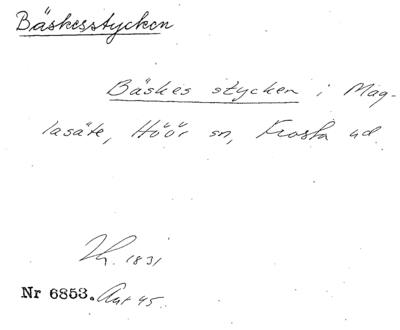 Bäskesstycken
Bäskes stycken i Mag-
lasäte, Höör sn, Frosta hd
1831
Nr 6853. Ant 45.